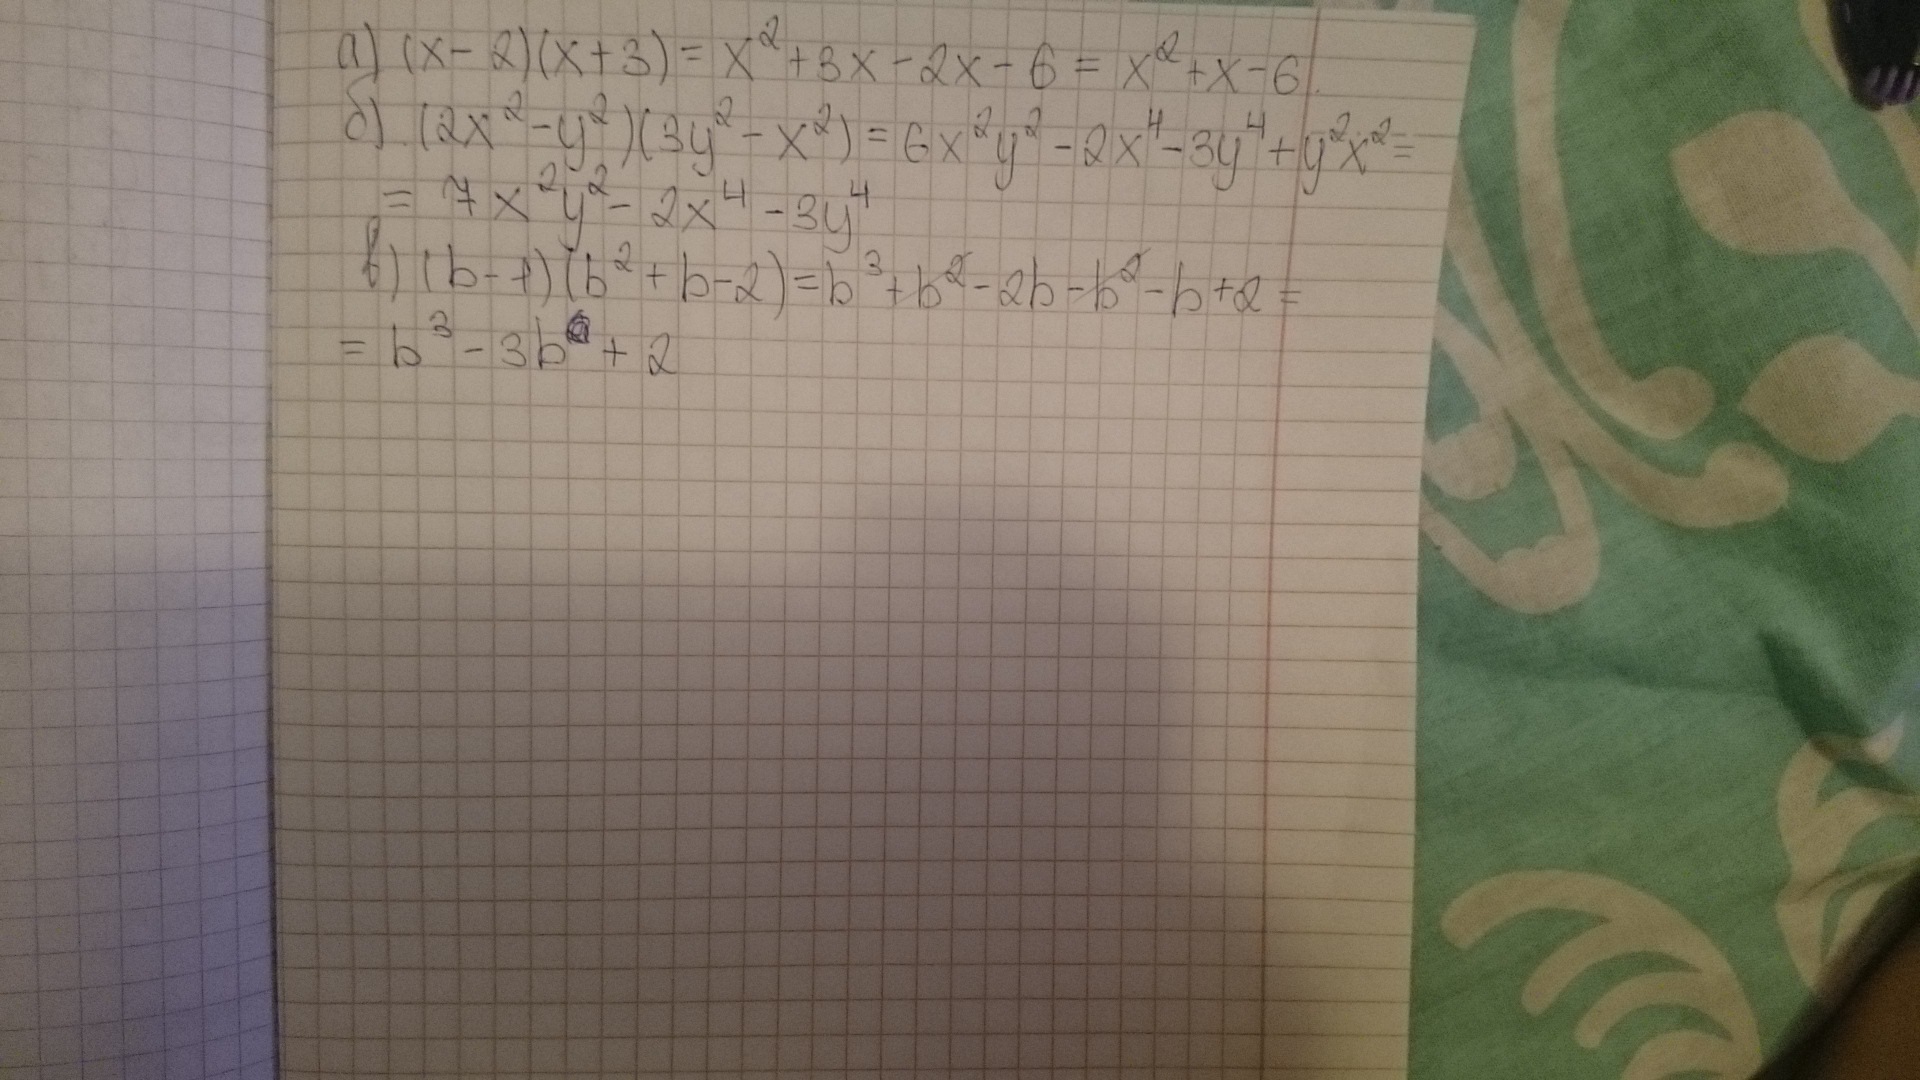 а) (x-2)(x+3)=x²+3x-2x-6=x²+x-6.
б) (2x²-y²)(3y²-x²)=6x²y²-2x⁴-3y⁴+y²x²=
=7x²y²-2x⁴-3y⁴
в) (b-1)(b²+b-2)=b³+b²-2b-b²-b+2=
=b³-3b+2